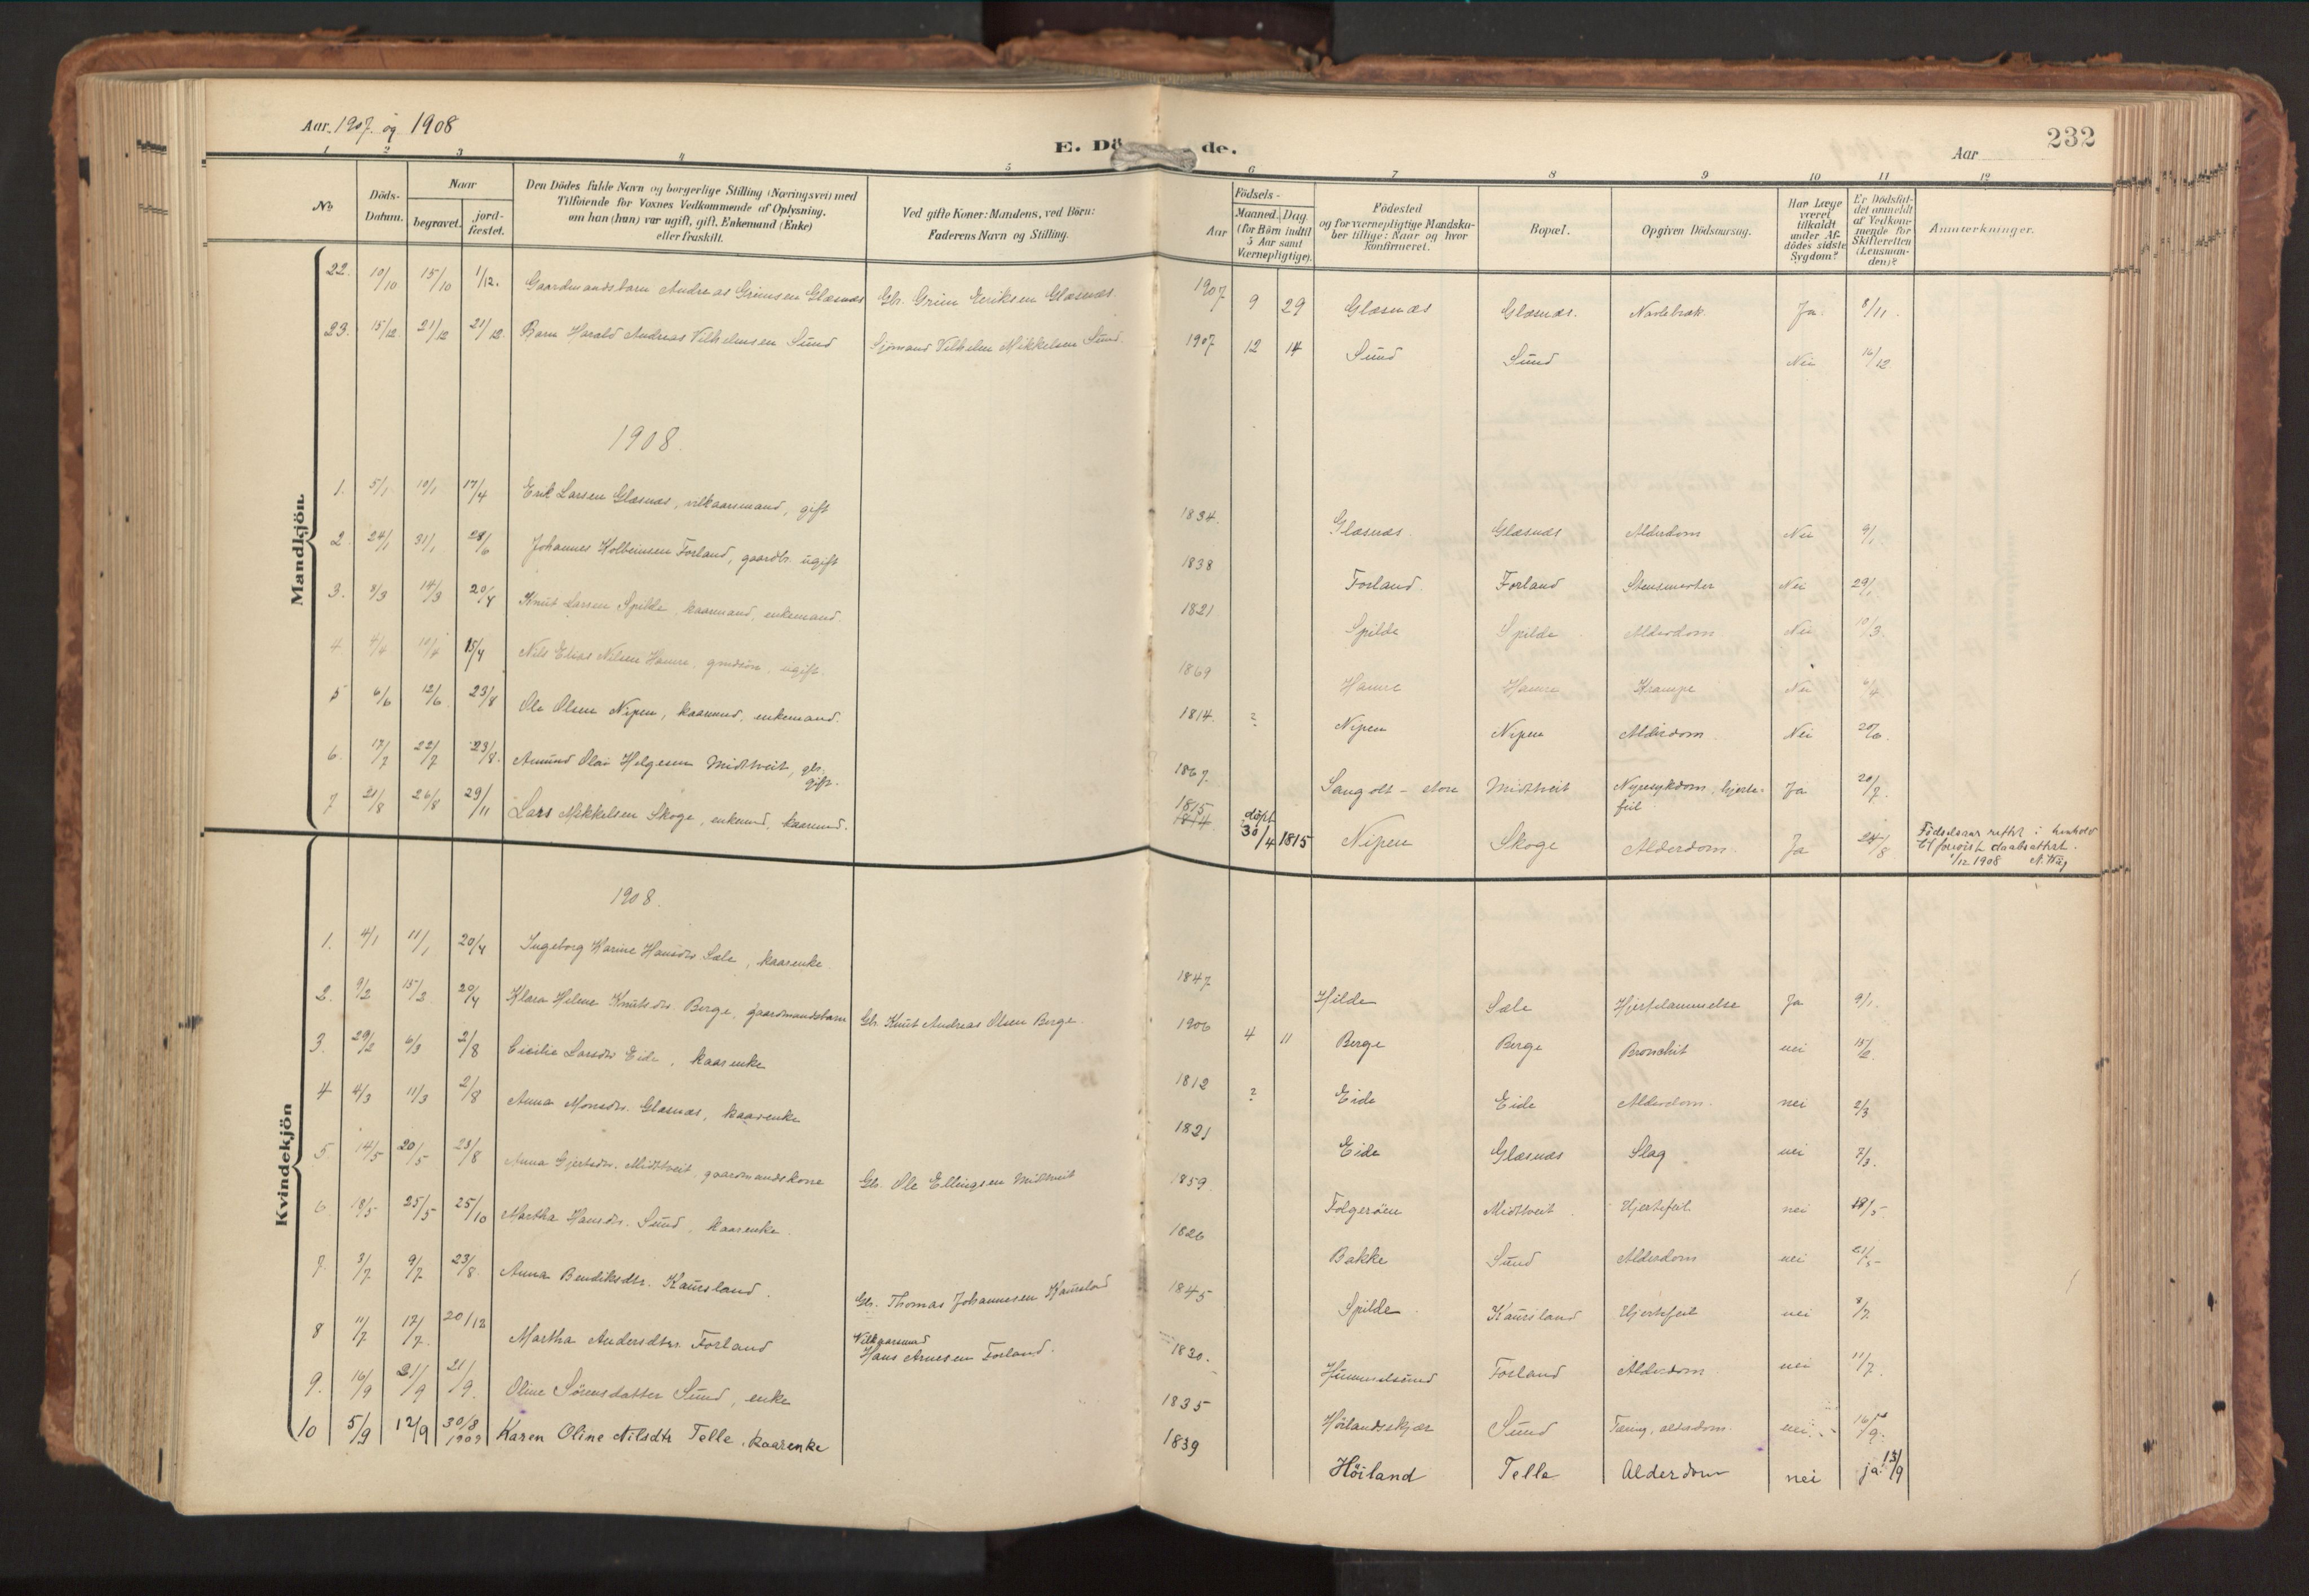 Aar 1907 og 1908
E. Dö de.
Aar
232
1 2 3 4 5 6 7 8 9 10 11 12
No
Döds-
Datum.
Naar
begravet.
jord-
fæstet.
Den Dödes fulde Navn og borgerlige Stilling (Næringsvei) med
Tilföiende for Voxnes Vedkommende af Oplysning,
om han (hun) var ugift, gift, Enkemand (Enke)
eller fraskilt.
Ved gifte Koner: Mandens, ved Börn:
Faderens Navn og Stilling.
Födsels-
Aar
Maaned. Dag
(for Börn indtil
5 Aar samt
Værnepligtige).
Födested
og for værnepligtige Mandska-
ber tillige: Naar og hvor
konfirmeret.
Bopæl.
Opgiven Dödsaarsag.
Har Læge
været
tilkaldt
under Af-
dödes sidste
Sygdom?
Er Dödsfal-
det anmeldt
af Vedkom-
mende for
Skifteretten
(Lensman-
den)?
Anmerkninger.
Mandkjön.
22. 10/10 15/10 1/12. Gaardmandsbarn Andreas Grimsen Glæsnæs Gbr. Grim Eriksen Glæsnæs. 1907 9 29 Glæsnæs Glæsnæs. Navlebrok Ja 8/11.
23. 15/12. 21/12 21/12. Barn Harald Andreas Vilhelmsen Sund Sjömand Vilhelm Mikkelsen Sund. 1907 12 14 Sund Sund Nei 16/12
1908.
1. 5/1 10/1 17/4 Erik Larsen Glæsnæs, vilkaarsmand, gift 1834. Glæsnæs. Glæsnæs Alderdom Nei 9/1.
2. 24/1 31/1 28/6 Johannes Kolbeinsen Forland, gaardbr. ugift 1838 Forland. Forland Nei 29/1
3. 8/3 14/3 20/4 Knut Larsen Spilde, kaarmand, enkemand. 1821 Spilde Spilde Alderdom Nei 10/3.
4 4/4 10/4 15/4 Nils Elias Nilsen Hamre, ugift 1869 Hamre Hamre Krampe Nei 6/4
5 6/6 12/6 23/8 Ole Olsen Nipen, kaarmd, enkemand. 1814. ? Nipen Nipen Alderdom. Nei 20/6.
6. 17/7 22/7 23/8. Amund Olai Helgesen Midtveit, gbr.
gift.
1867. Sangolt - store Midtveit Nyresykdom, hjerte-
feil Ja 20/7.
7 21/8 26/8 29/11 Lars Mikkelsen Skoge, enkemd, kaarmd. 1815
1814 döpt
30/4 1815 Nipen Skoge Alderdom. Ja 24/8 Födselsaar rettet i henhold
til forevist daabsattest.
1/12 1908
Kvindekjön
1908.
1. 4/1 11/1 20/4 Ingeborg Karine Hansdtr Sæle, kaarenke 1847 Hilde Sæle Hjertelammelse Ja 9/1.
2. 9/2 15/2 20/4 Klara Helene Knutsdtr. Berge, gaardmandsbarn Gbr. Knut Andreas Olsen Berge. 1906 4 11 Berge Berge Bronchit nei 15/2.
3. 29/2 6/3 2/8 Cicilie Larsdtr Eide, kaarenke 1812 ? Eide Eide Alderdom. nei 2/3
4 4/3 11/3 2/8 Anna Monsdtr. Glæsnæs, kaarenke 1821 Eide Glæsnæs Slag nei 7/3.
5 14/5 20/5 23/8 Anna Gjertsdtr. Midtveit, gaardmandskone Gbr. Ole Ellingsen Midtveit 1859 Folgeröen Midtveit. Hjertefeil nei 18/5
6. 18/5 25/5 25/10 Martha Hansdtr. Sund, kaarenke. 1826 Bakke Sund Alderdom nei 21/5
7. 3/7 9/7 23/8. Anna Bendiksdtr. Kausland. Gbr. Thomas Johannesen Kausland 1845 Spilde. Kausland Hjertefeil nei 8/7
8 11/7 17/7. 20/12 Martha Andersdtr. Forland Vilkaarsmd
Hans Arnesen Forland. 1830. Hummelsund Forland Alderdom nei 11/7.
9. 16/9 21/9 21/9. Oline Sörensdatter Sund, enke 1835 Höilandsskjær Sund Tæring, alderdom. nei 16/9.
10 5/9 12/9 30/8
1909 Karen Oline Nilsdtr Telle, kaarenke 1839 Höiland Telle Alderdom nei ja 13/9